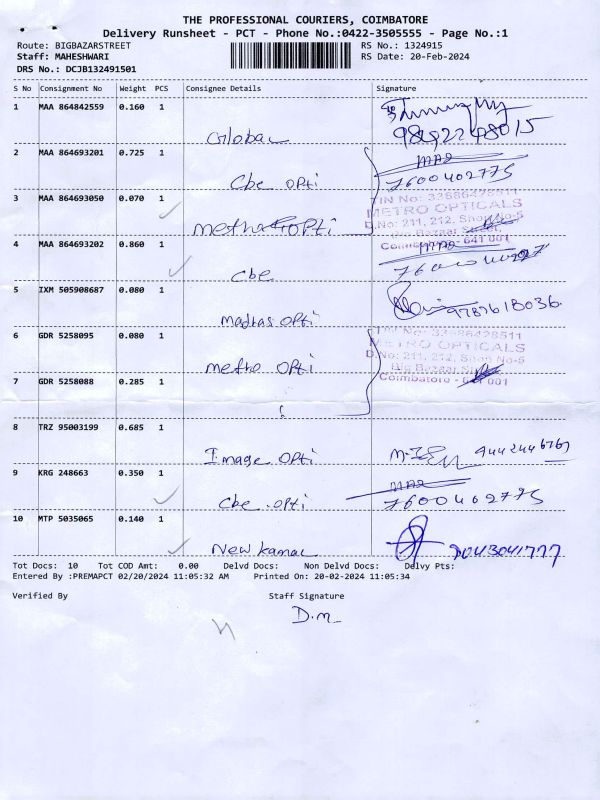 THE PROFESSIONAL COURIERS, COIMBATORE
Delivery Runsheet - PCT - Phone No.:0422-3505555 - Page No.:1
Route: BIGBAZARSTREET RS No.: 1324915
Staff: MAHESHWARI RS Date: 20-Feb-2024
DRS No.: DCJB132491501
S No Consignment No Weight PCS Consignee Details Signature
1 MAA 864842559 0.160 1
Global
2 MAA 864693201 0.725 1
Cbe opti 7600402775
3 MAA 864693050 0.070 1
TIN No: 33586428511
METRO OPTICALS
D.No: 211, 212, Shop No-5
Big Bazaar Street,
Coimbatore - 641 001
4 MAA 864693202 0.860 1
Cbe
5 IXM 505908687 0.080 1
madras opti 9787618036
6 GDR 5258095 0.080 1
TIN No: 33586428511
METRO OPTICALS
D.No: 211, 212, Shop No-5
Big Bazaar Street,
Coimbatore - 641 001
metro opti
7 GDR 5258088 0.285 1
8 TRZ 95003199 0.685 1
Image opti 9442446767
9 KRG 248663 0.350 1
Cbe . opti 7600402775
10 MTP 5035065 0.140 1
New kamal 9043041777
Tot Docs: 10 Tot COD Amt: 0.00 Delvd Docs: Non Delvd Docs: Delvy Pts:
Entered By :PREMAPCT 02/20/2024 11:05:32 AM Printed On: 20-02-2024 11:05:34
Verified By Staff Signature
D.m